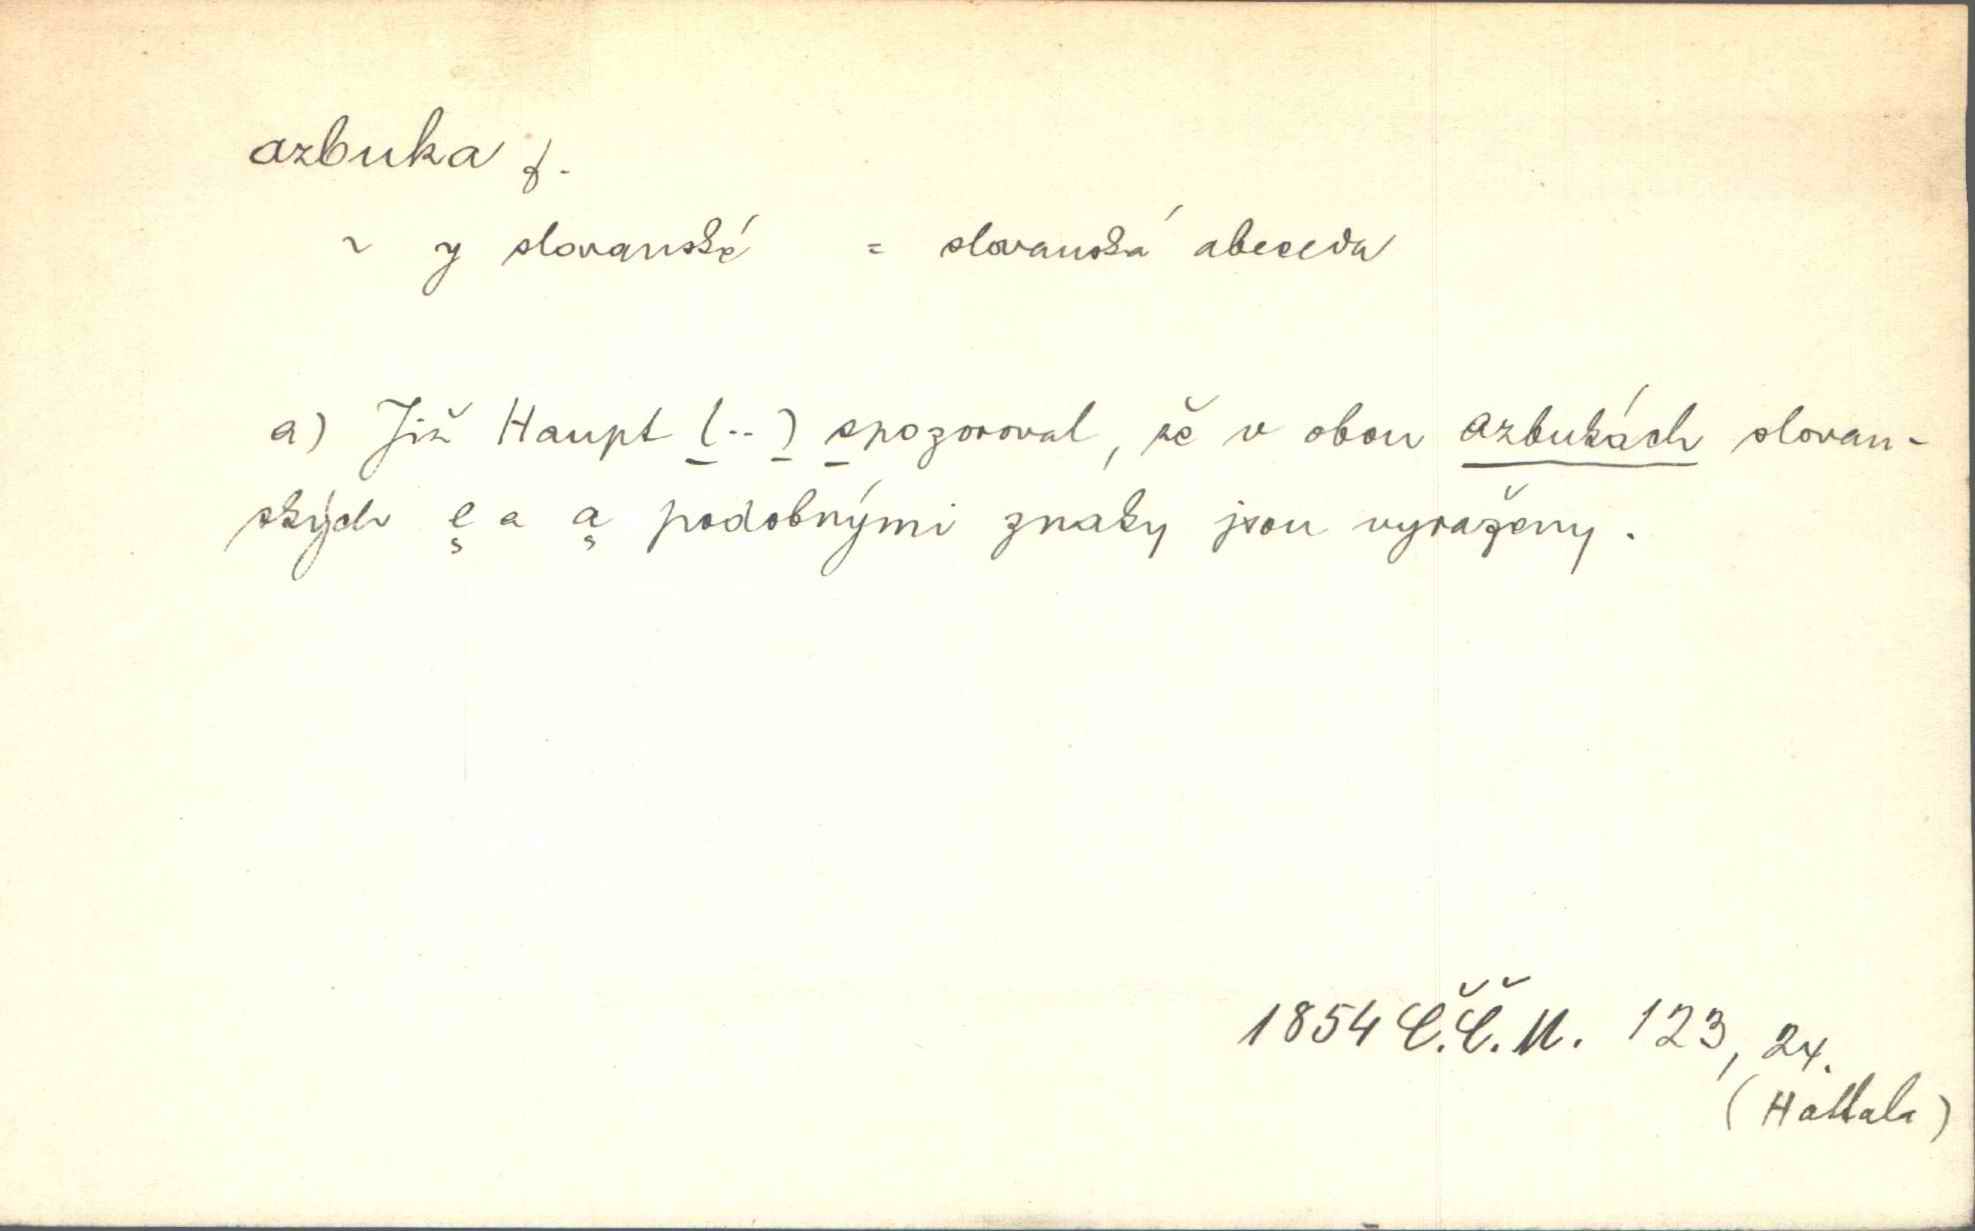 azbuka f.
~ y slovanské = slovanská abeceda
a) Již Haupt (..) spozoroval, že v obou azbukách slovan-
ských ę a ą podobnými znaky jsou vyraženy.
1854 Č.Č.M. 123, 24.
(Hattala)